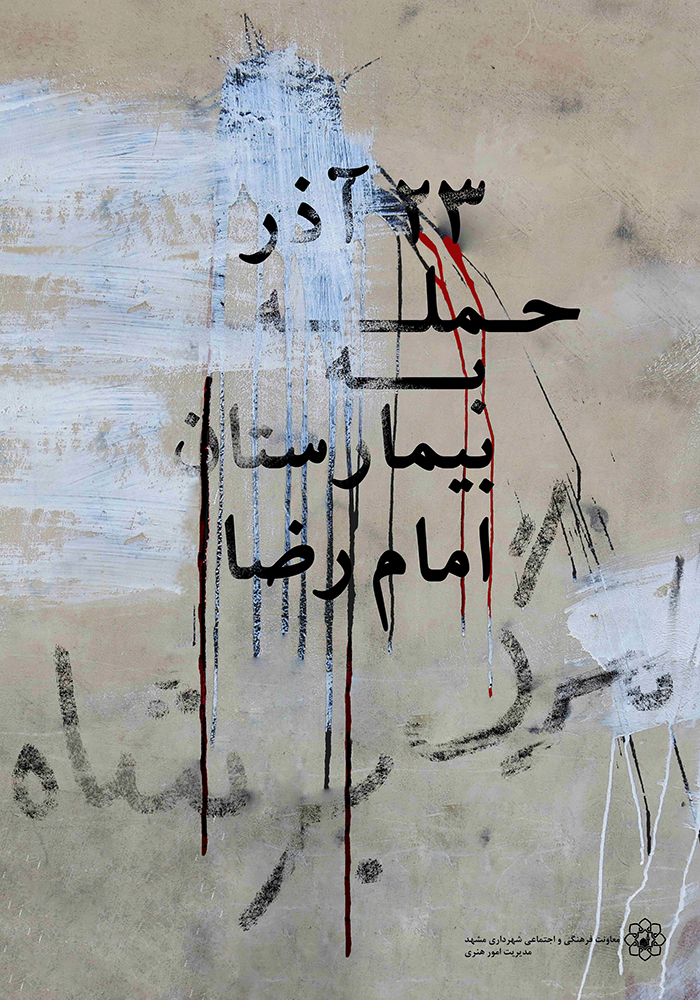 ۲۳ آذر
حملـــه
بـــه
بیمارستان
امام رضا
مرگ
بر شاه
معاونت فرهنگی و اجتماعی شهرداری مشهد
مدیریت امور هنری